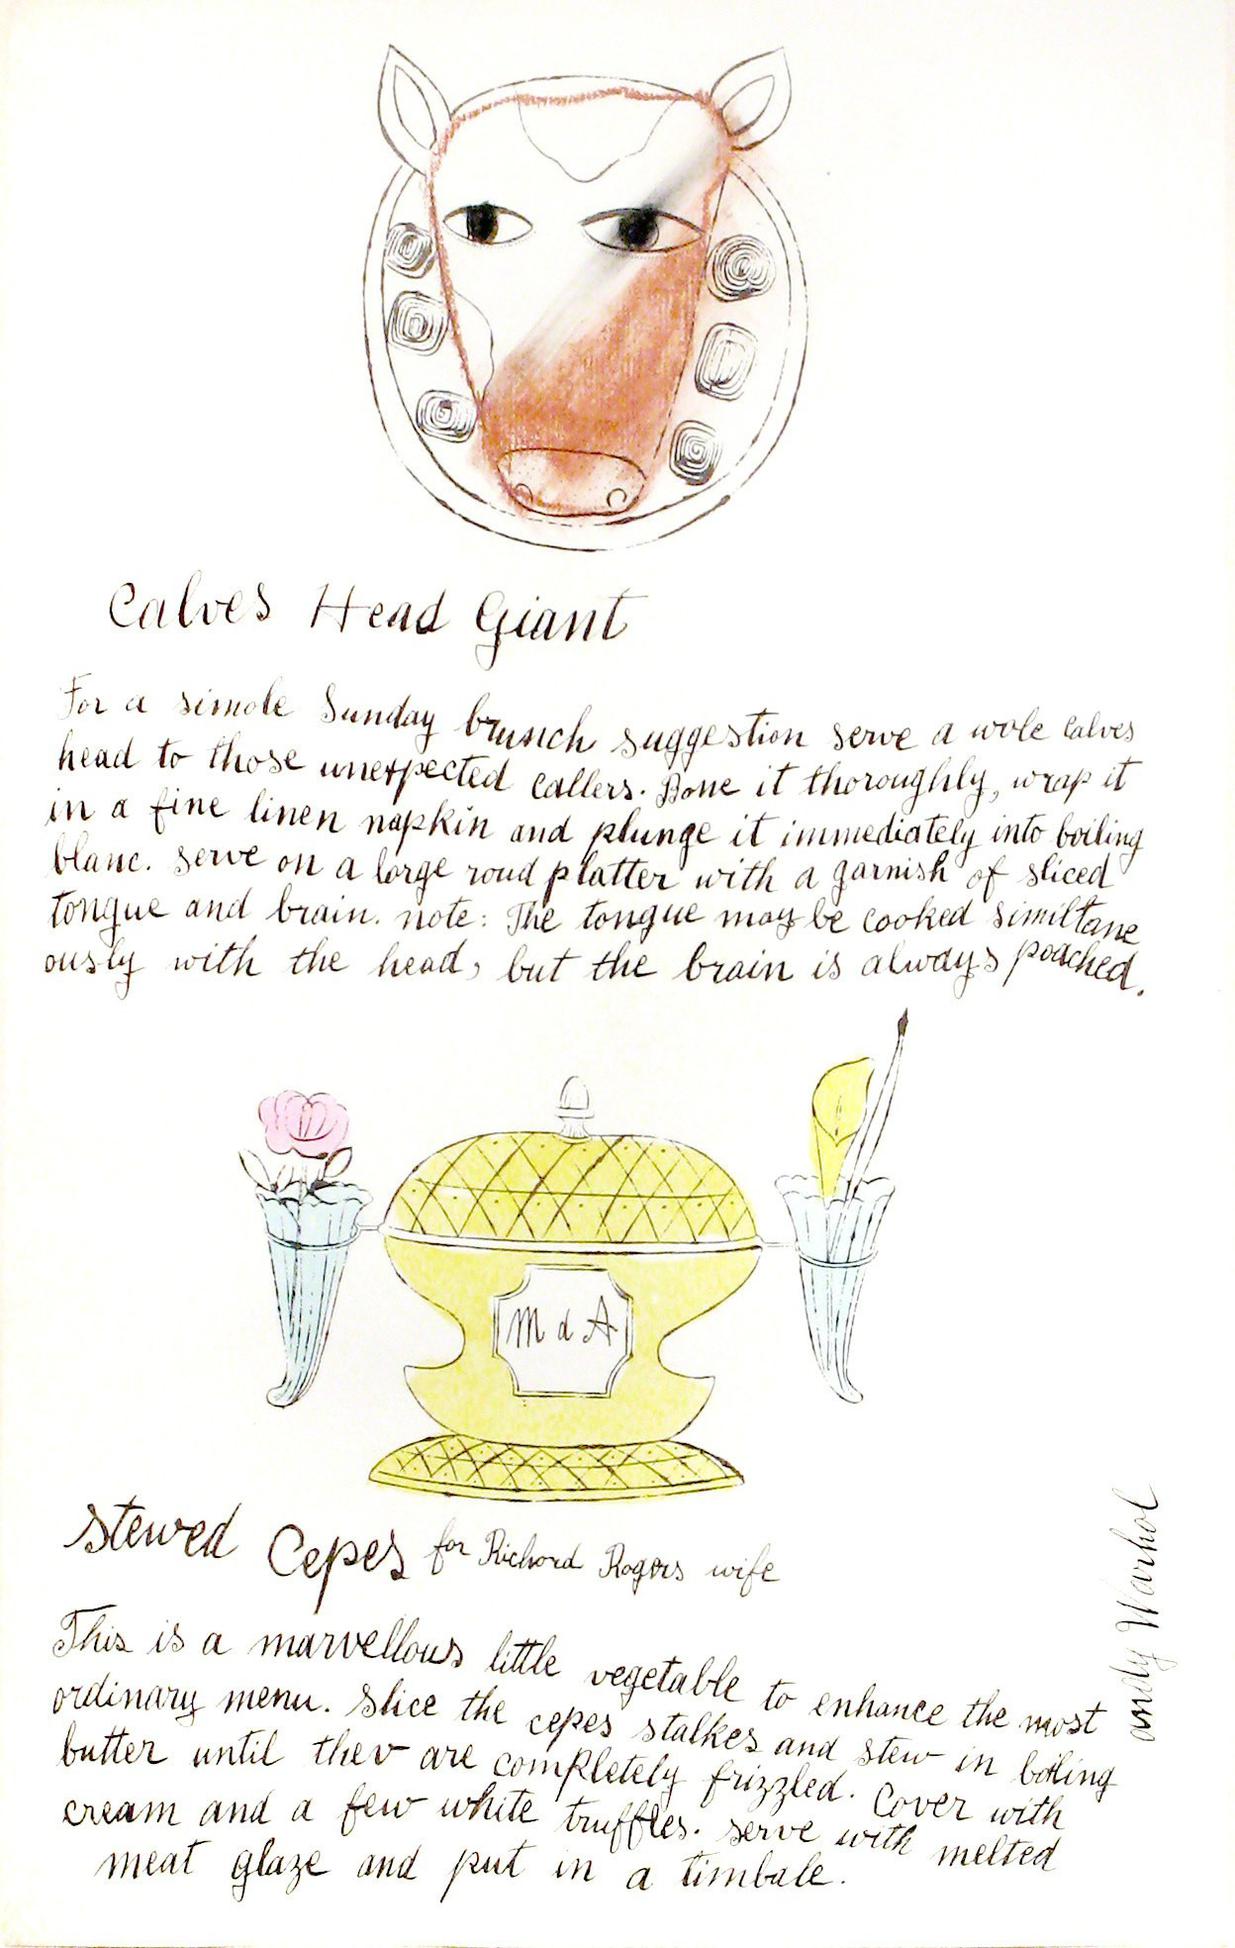 Calves Head Giant
For a simole Sunday brunch suggestion serve a wole calves
head to those unexpected callers. Bone it thoroughly, wrap it
in a fine linen napkin and plunge it immediately into boiling
blanc. serve on a large roud platter with a garnish of sliced
tongue and brain. note: The tongue may be cooked similtane
ously with the head, but the brain is always poached.
M d A
Stewed Cepes for Richard Rogers wife
This is a marvellous little vegetable to enhance the most
ordinary menu. Slice the cepes stalkes and stew in boiling
butter until thev are completely frizzled. Cover with
cream and a few white truffles. serve with melted
meat glaze and put in a timbale.
andy Warhol